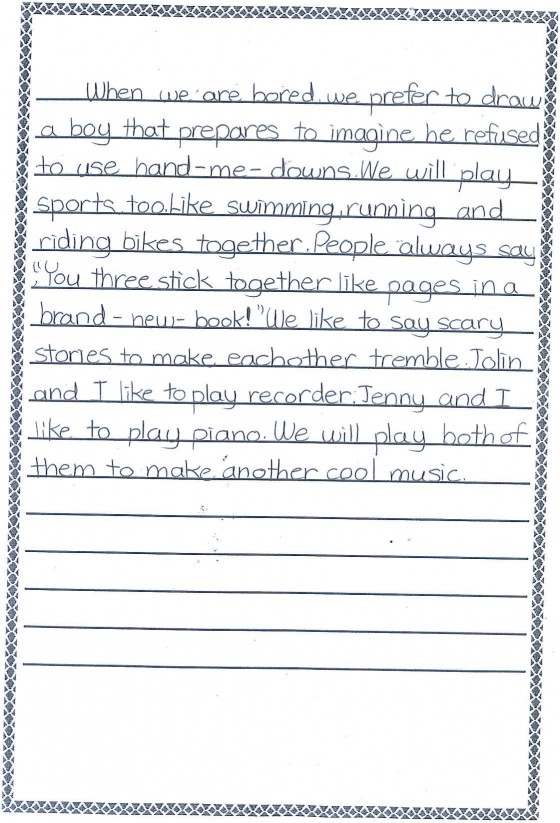 When we are bored we prefer to draw
a boy that prepares to imagine he refused
to use hand-me-downs. We will play
sports too. Like swimming, running and
riding bikes together. People always say
, "You three stick together like pages in a
brand-new-book!" We like to say scary
stories to make eachother tremble. Jolin
and I like to play recorder. Jenny and I
like to play piano. We will play both of
them to make another cool music.